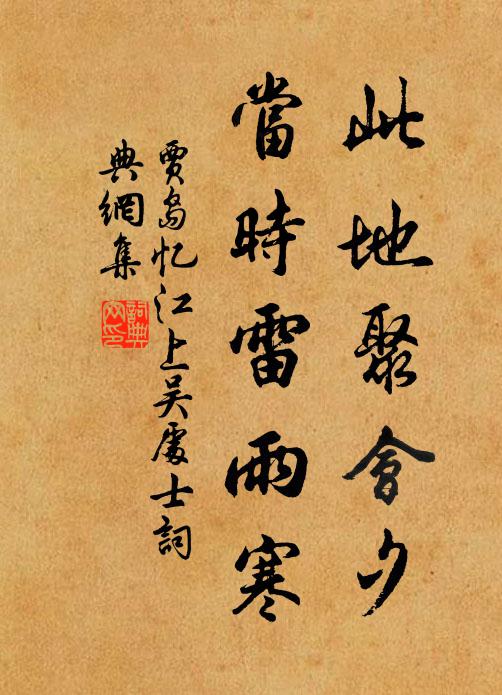 此地聚會夕
當時雷雨寒
賈島忆江上吴處士詞
典網集
詞典
网印